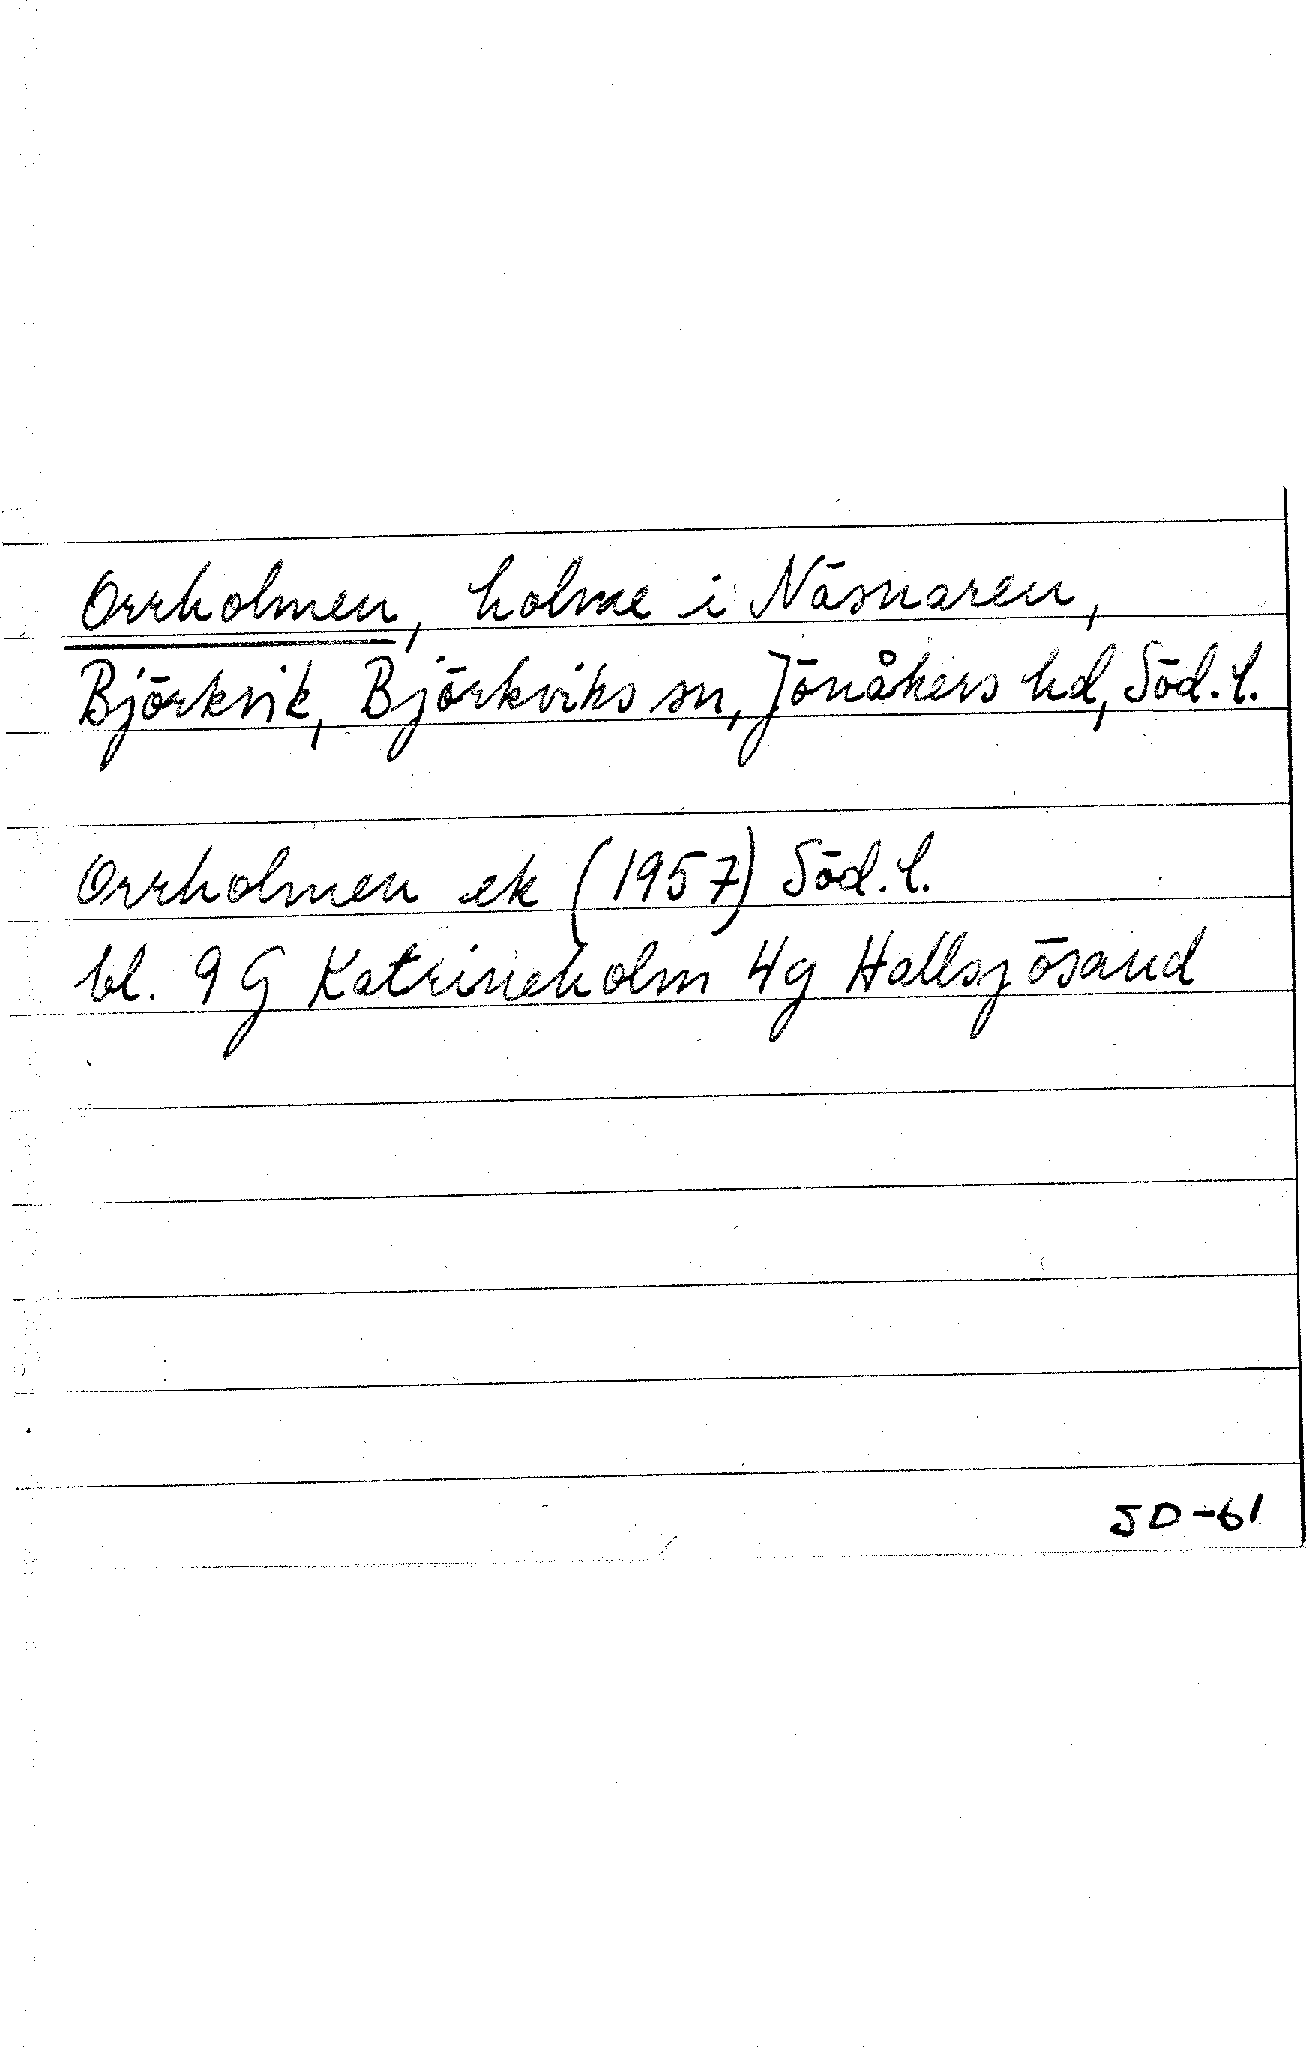 Orrholmen, holme i Näsnaren,
Björkvik, Björkviks sn, Jönåkers hd, Söd.l.
Orrholmen ek (1957) Söd.l.
bl. 9G Katrineholm 4g Hallsjösand
SD-61